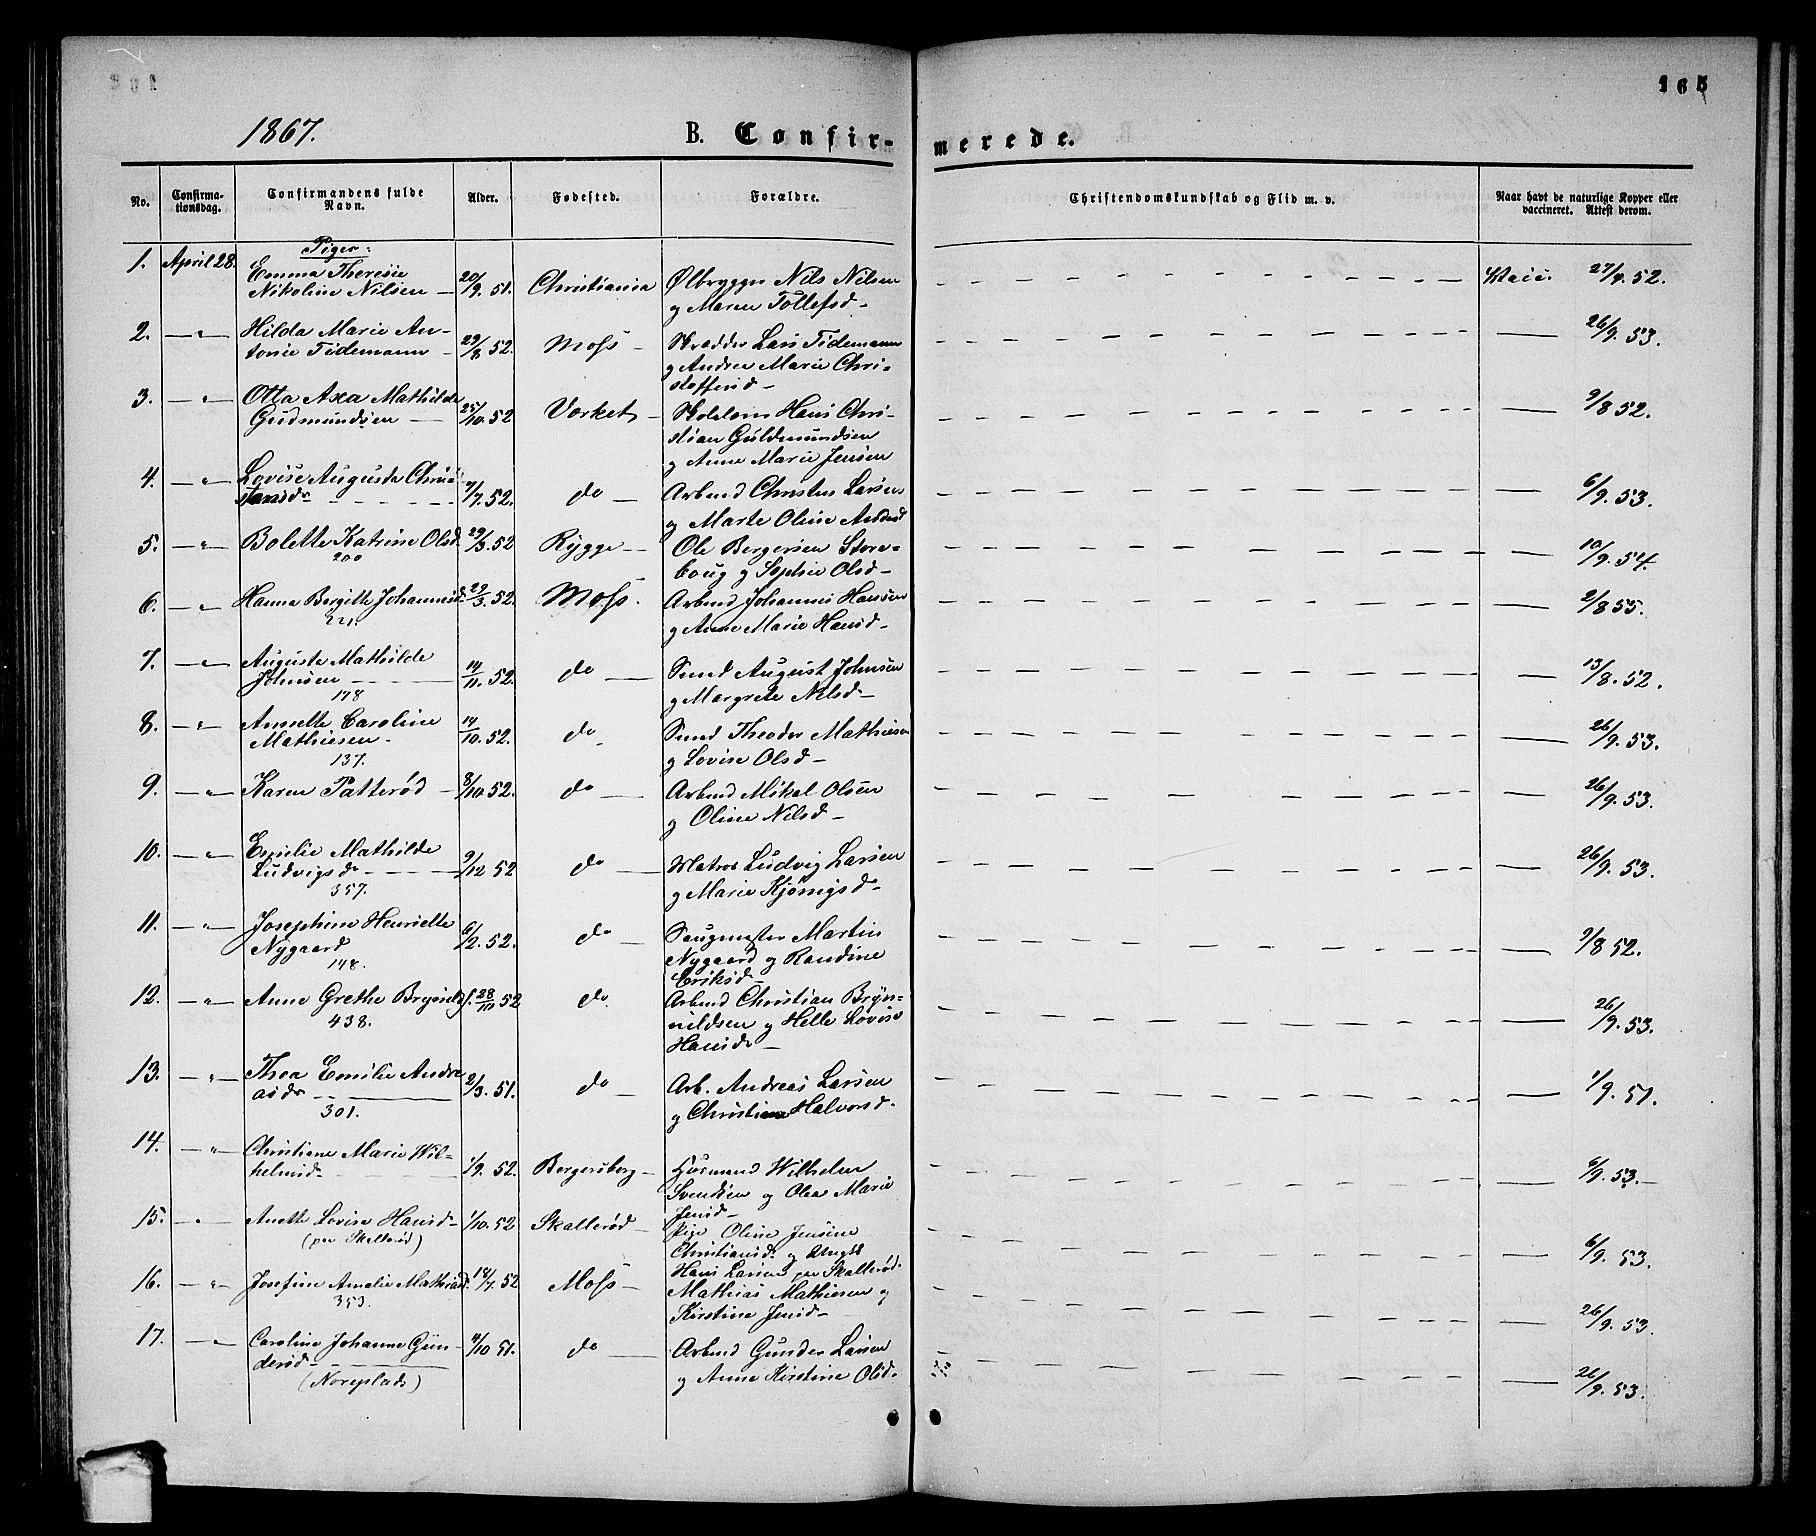 165
1867.
B. Confirmerede.
No. Confirmationsdag. Confirmandens fulde Navn. Alder. Fødested. Forældre. Christendomskundskab og Flid m. v. Naar havt de naturlige Kopper eller vaccineret. Attest derom.
Piger:
1. April 28. Emma Theresie 20/9. 51. Christiania Ølbrygger Nils Nilsen 27/9. 52.
Nikoline Nilsen — og Maren Tollefsd —
2. — " — Hilda Marie An- 29/8 52. Moss — Skrædder Lars Tidemann — 26/9. 53.
tonie Tidemann — og Andrea Marie Chri-
stoffersd —
3. — " — Otta Axa Mathilde 25/10. 52 Værket — Hans Chri- — 9/8 52.
Gudmundsen — stian Guldmundsen
og Anne Marie Jensen
4. — " — Lovise Augusta Chris- 7/7. 52. do — Arbmd Christen Larsen — 6/9. 53.
tensd og Marte Oline Andersd
5. — " — Bolette Katrine Olsd 29/3. 52 Rygge — Ole Bergersen Store- — 10/9. 54.
200 boug og Sophie Olsd —
6. — " — Hanna Bergitte Johannesd. 29/3. 52. Moss. Arbmd Johannes Hansen — 2/8 55.
221. og Anne Marie Hansd —
7. — " — Augusta Mathilde 14/11. 52. do — Sømd August Johnsen — 13/8. 52.
Johnsen — og Margrete Nilsd —
178
8. — " — Annette Caroline 14/10. 52. do Sømd Theodor Mathiesen — 26/9. 53.
Mathiesen — og Lovise Olsd —
137.
9. — " — Karen Patterød — 8/10. 52. do — Arbmd Mikal Olsen — 26/9. 53.
og Oline Nilsd —
10. — " — Emilie Mathilde 9/12 52 do — Matros Ludvig Larsen — 26/9. 53.
Ludvigsd — og Marie Kjønigsd —
357.
11. — " — Josephine Henriette 6/2. 52. do — Saugmester Martin — 9/8 52.
Nygaard Nygaard og Randine
148. Eriksd —
12. — " — Anne Grethe Brynild 28/10 52 do Arbmd Christian Bryn- — 26/9. 53.
438. nildsen og Helle Lovise
Hansd —
13. — " — Thea Emilie Andre 2/3. 51. do — Arb. Andreas Larsen — 1/9. 51.
asd — og Christiane Halvorsd.
301.
14. — " — Christiane Marie Wil- 1/9. 52. Bergersborg — Husmand Wilhelm — 6/9. 53. —
helmsd — Svendsen og Olea Marie
Jensd —
15. — " — Anette Lovise Hansd — 1/10. 52 Skallerød — Pige Oline Jensine — 6/9. 53.
(per Skallerød) Christiansd. og Ungk
Hans Larsen per Skallerød.
16. — " — Josefine Amalie Mathiasd. 18/7. 52 Moss — Mathias Mathiesen og — 26/9. 53.
353. Kirstine Jensd —
17. — " — Caroline Johanne Gun- 4/10 51. do — Arbmd Gunder Larsen — 26/9. 53.
dersd — og Anne Kirstine Olsd.
(Noreplads)